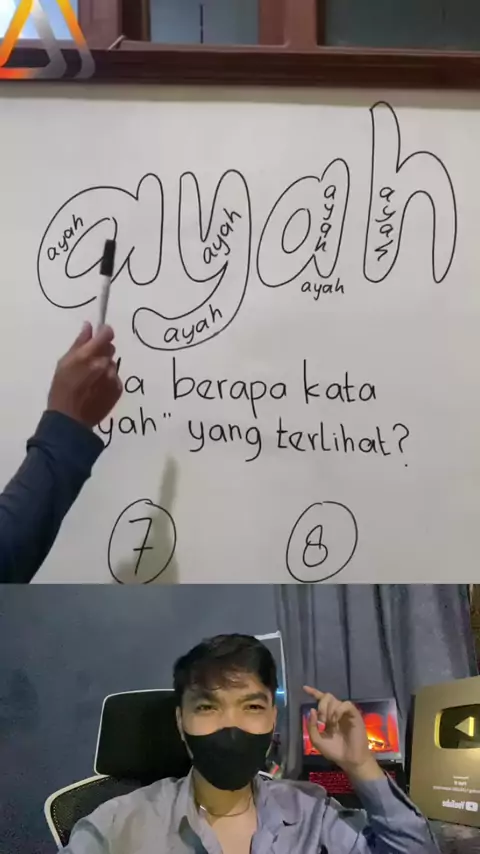 ayah
ayah
ayah
ayah
ayah
ayah
ayah
berapa kata
yah" yang terlihat?
7
8
YouTube